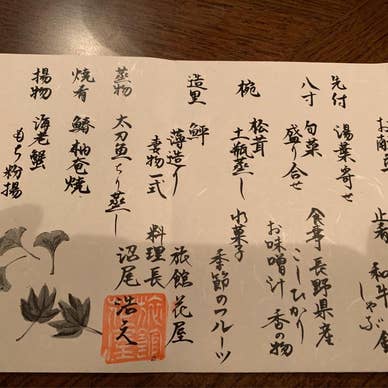 先付
湯葉寄せ
八寸
旬菜
盛り合せ
椀
松茸
土瓶蒸し
造里
鮃
薄造り
妻物一式
蒸物
太刀魚ちり蒸し
焼肴
鰆柚菴焼
揚物
海老蟹
もち粉揚
和牛
しゃぶ
食事 長野県産
こしひかり
お味噌汁 香の物
水菓子
季節のフルーツ
旅館花屋
料理長
沼尾